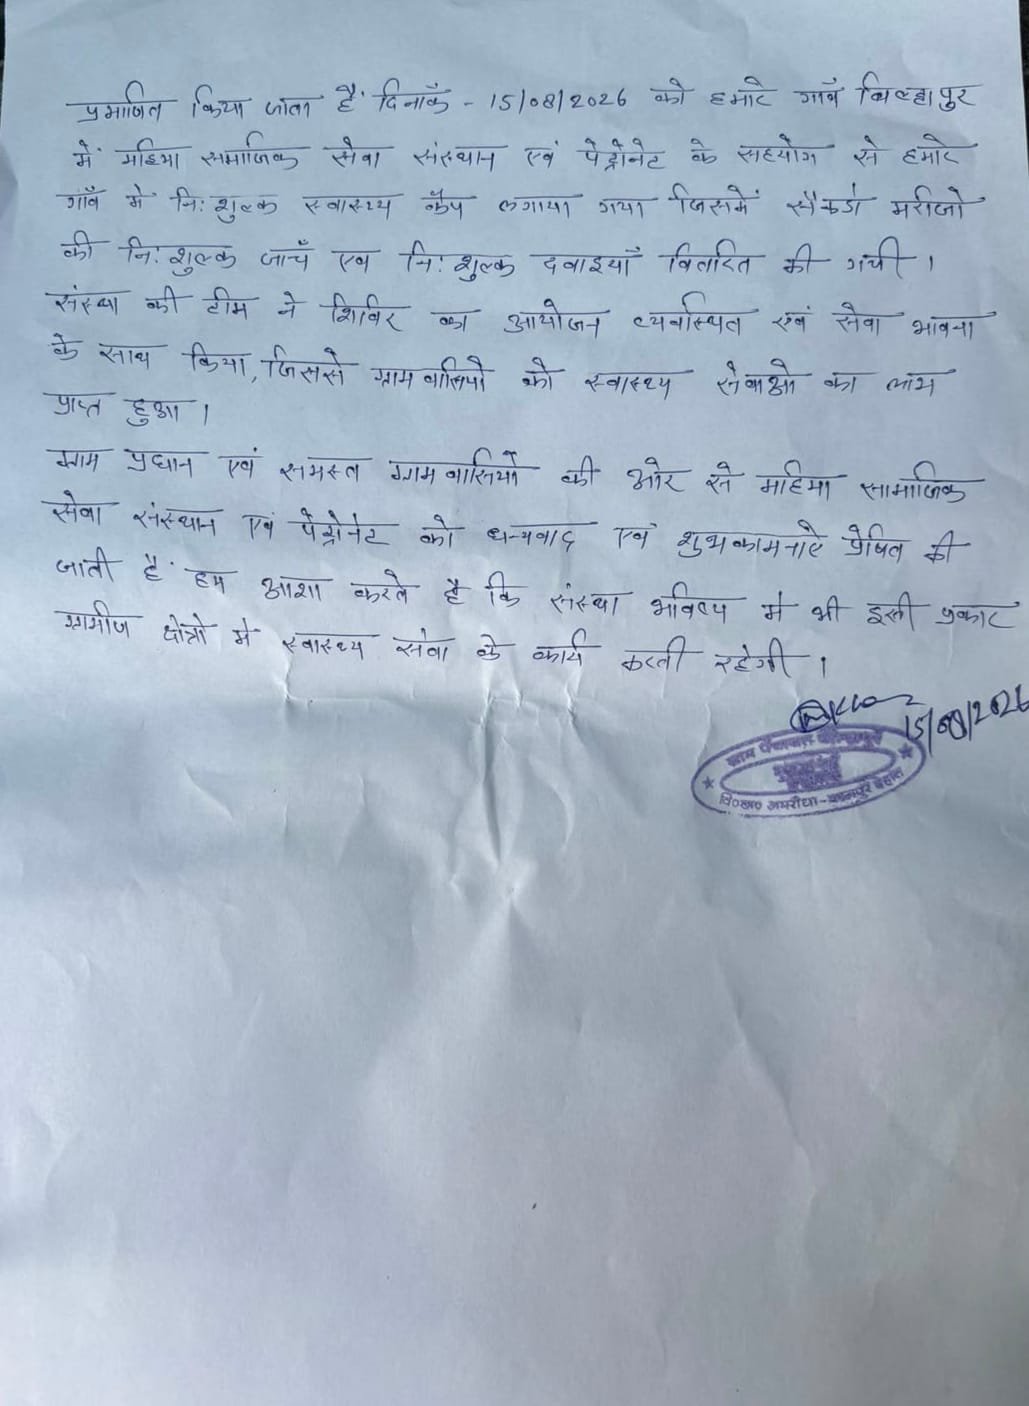 प्रमाणित किया जाता है दिनाँक - 15/08/2026 को हमारे गाँव बिल्हापुर
में महिमा समाजिक सेवा संस्थान एवं पेट्रोनेट के सहयोग से हमारे
गाँव में नि:शुल्क स्वास्थ्य कैंप लगाया गया जिसमें सैकडो मरीजो
की नि:शुल्क जाचँ एव नि:शुल्क दवाइयाँ वितरित की गयी ।
संस्था की टीम ने शिविर का आयोजन व्यवस्थित एवं सेवा भावना
के साथ किया, जिससे ग्राम वासियो को स्वास्थ्य सेवाओ का लाभ
प्राप्त हुआ ।
ग्राम प्रधान एवं समस्त ग्राम वासियों की ओर से महिमा सामाजिक
सेवा संस्थान एवं पेट्रोनेट को धन्यवाद एवं शुभकामनाऐ प्रेषित की
जाती है हम आशा करते है कि संस्था भविष्य मे भी इसी प्रकार
ग्रामीण क्षेत्रो मे स्वास्थ्य सेवा के कार्य करती रहेगी ।
15/08/2026
ग्राम पंचायत
वि०ख० अमरौधा - कानपुर देहात